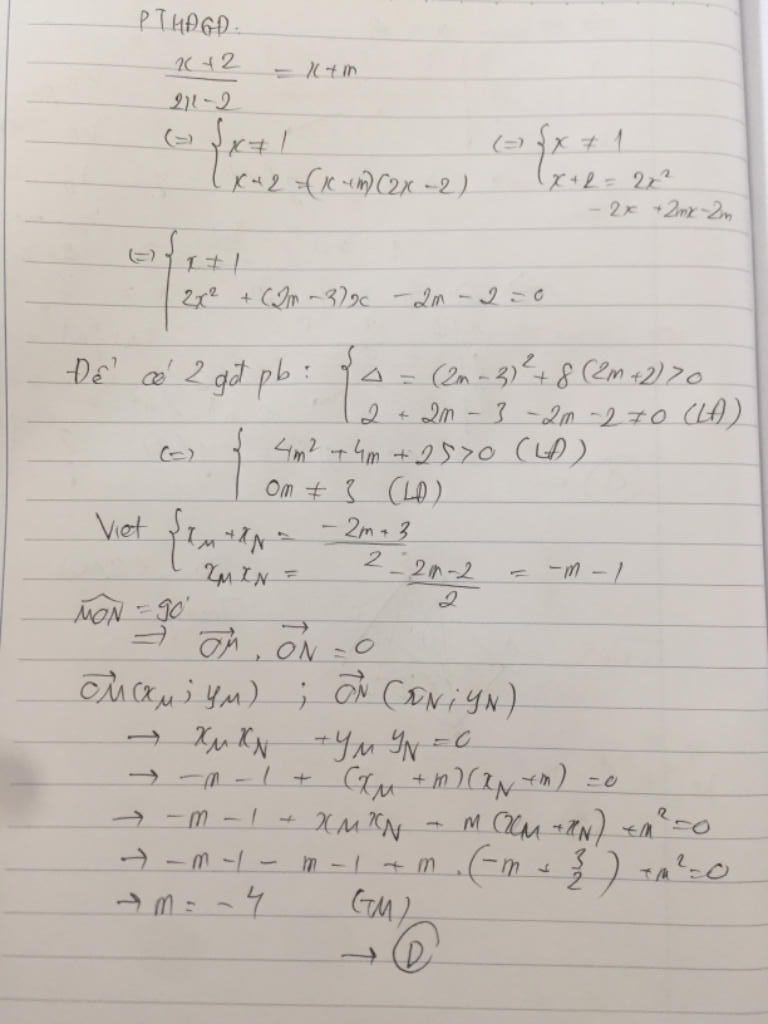 PTHĐGĐ.
x+2 / 2x-2 = x+m
(=) { x ≠ 1
x+2 = (x+m)(2x-2)
(=) { x ≠ 1
x+2 = 2x²
- 2x + 2mx - 2m
(=) { x ≠ 1
2x² + (2m-3)x - 2m - 2 = 0
Để có 2 gđ pb: { Δ = (2m-3)² + 8(2m+2) > 0
2 + 2m - 3 - 2m - 2 ≠ 0 (LĐ)
(=) { 4m² + 4m + 25 > 0 (LĐ)
0m ≠ 3 (LĐ)
Viet { x_M + x_N = -2m+3 / 2
x_M x_N = -2m-2 / 2 = -m-1
MON = 90°
=> OM . ON = 0
OM (x_M; y_M) ; ON (x_N; y_N)
→ x_M x_N + y_M y_N = 0
→ -m-1 + (x_M + m)(x_N + m) = 0
→ -m-1 + x_M x_N + m(x_M + x_N) + m² = 0
→ -m-1 - m-1 + m.(-m + 3/2) + m² = 0
→ m = -4 (TM)
→ D